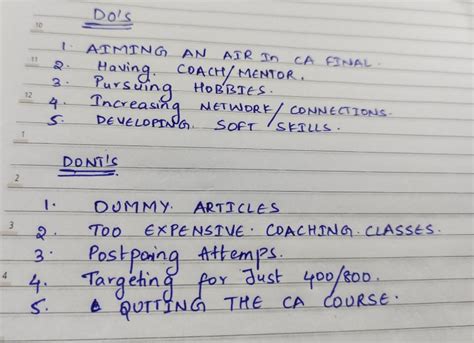 DO'S
10
1. AIMING AN AIR In CA FINAL.
11
2. Having COACH/MENTOR.
3. Pursuing HOBBIES.
12
4. Increasing NETWORK/CONNECTIONS.
5. DEVELOPING SOFT SKILLS.
1
DONT'S
2
1. DUMMY ARTICLES
3
2. TOO EXPENSIVE COACHING CLASSES.
3. Postpoing Attemps.
4
4. Targeting for Just 400/800.
5. QUTTING THE CA COURSE.